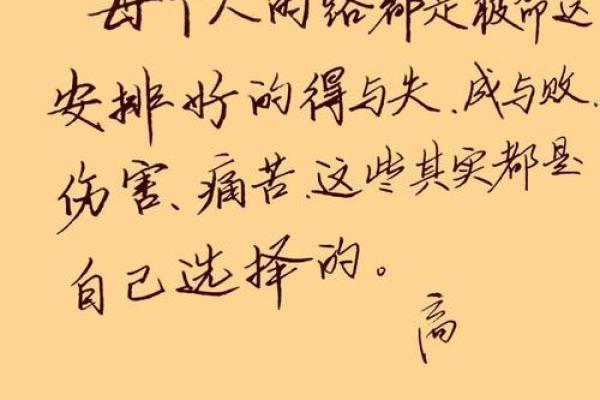 每个人的路都是被命运
安排好的得与失、成与败、
伤害、痛苦、这些其实都是
自己选择的。
高